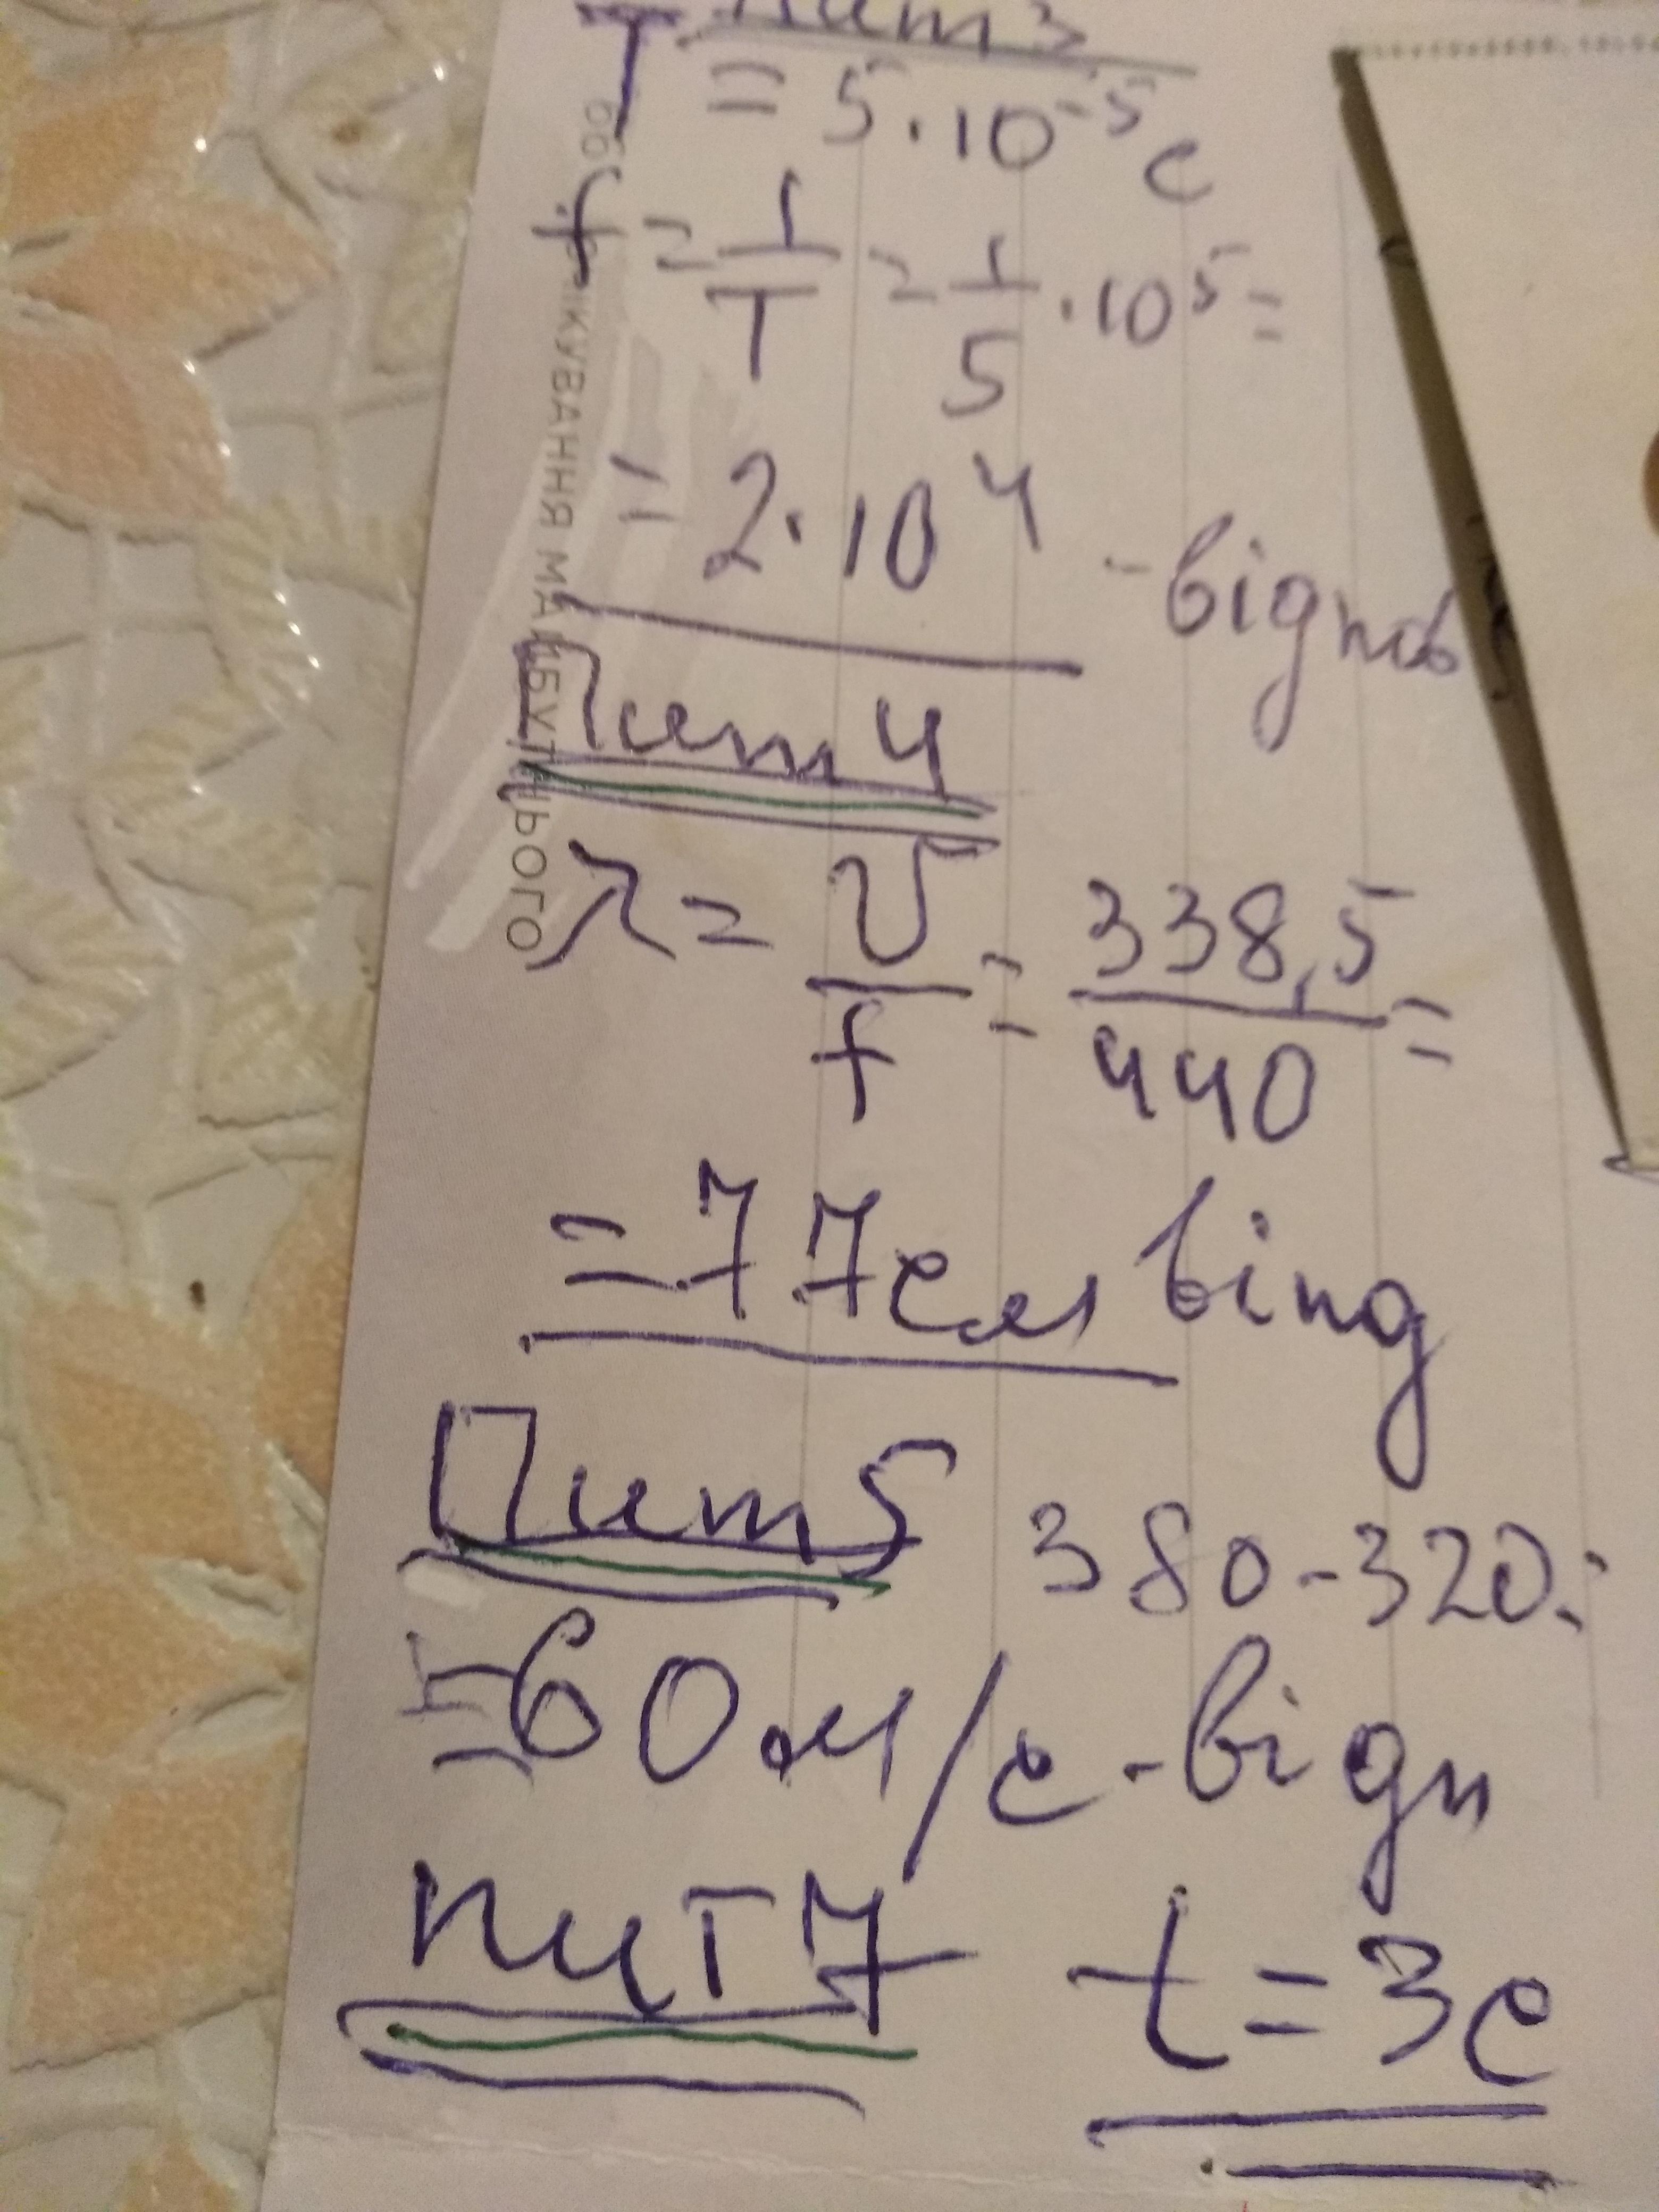 Пит 3
T = 5·10⁻⁵ с
f = 1/T = 1/5 · 10⁵ =
= 2·10⁴ - відпов
Пит 4
λ = υ/f = 338,5/440 =
= 77 см відп
Пит 5 380-320=
= 60 м/с - відп
пит 7 t = 3 с
ІКУВАННЯ МАЙБУТНЬОГО)